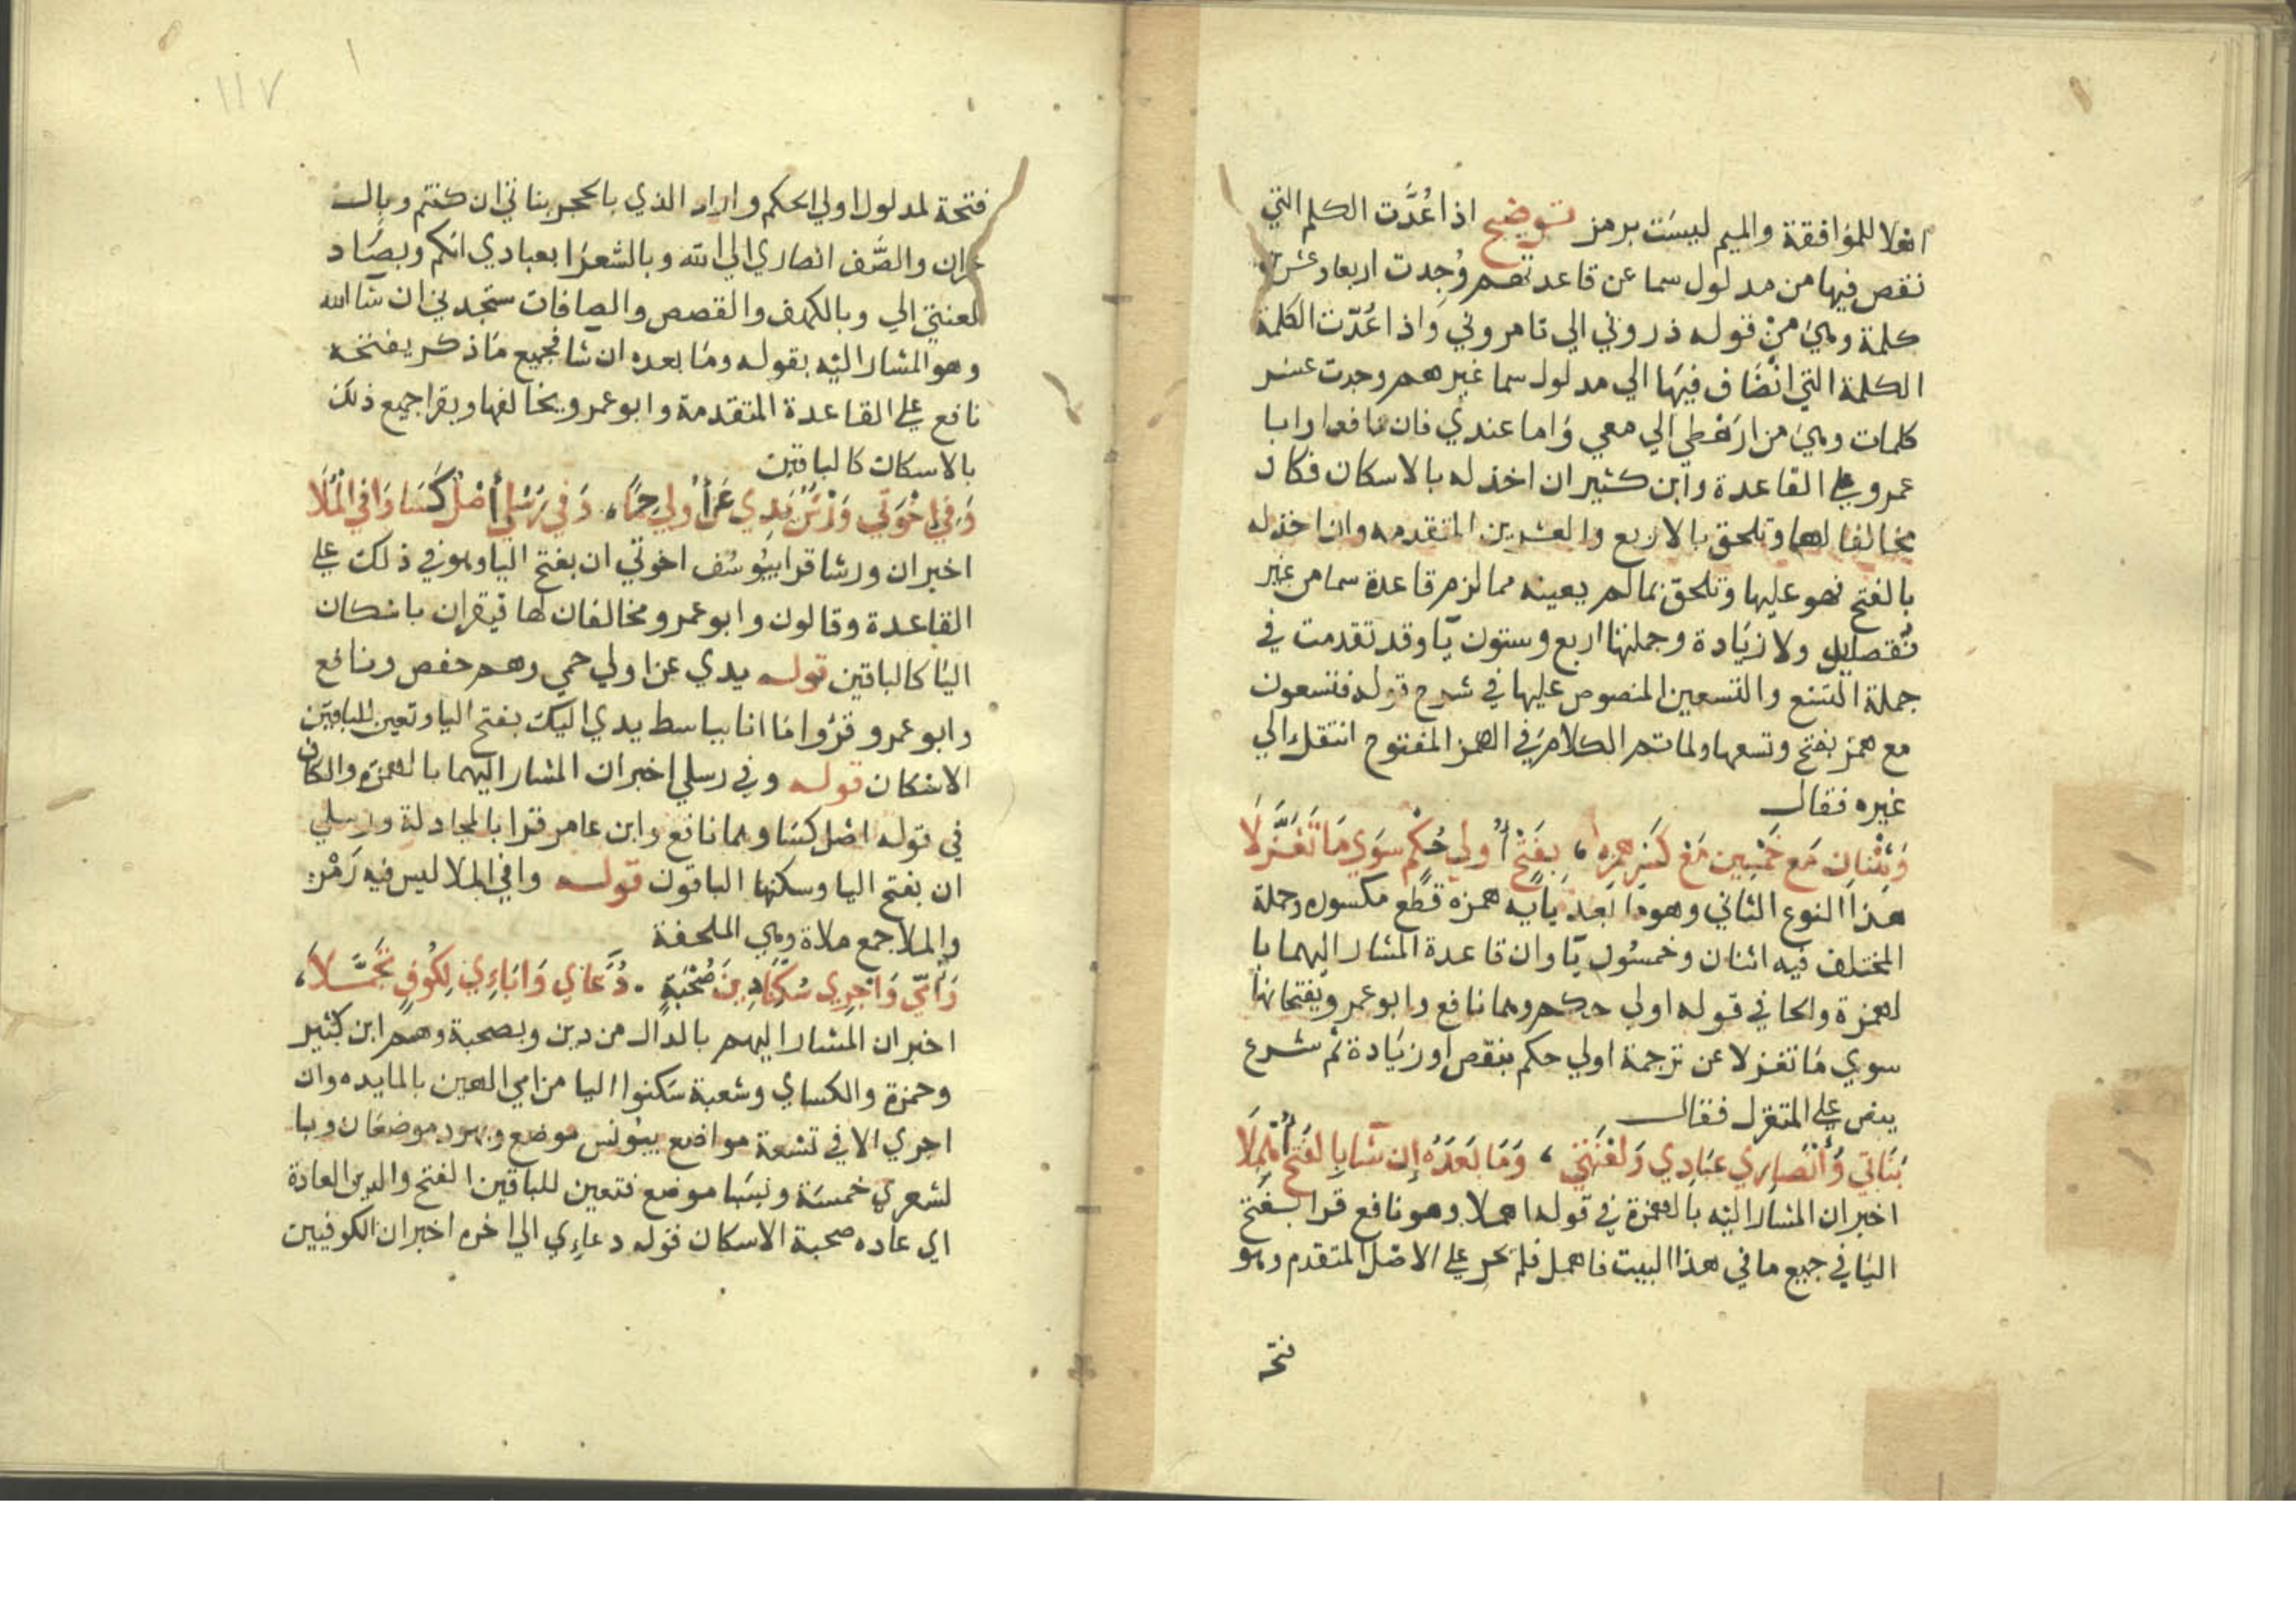 انغلا للموافقة والميم ليست برمز توضيح اذا عُدَّت الكلم التي
نقص فيها من مدلول سما عن قاعدتهم وُجدت اربعا وعشرين
كلمة وهي من قوله ذروني الي تامروني واذا عُدّت الكلمة
الكلمة التي انضاف فيها الي مدلول سما غيرهم وجدت عشر
كلمات وهي من ارهطي الي معي واما عندي فان نافعا وابا
عمرو علي القاعدة وابن كثير ان اخذ له بالاسكان فكان
مخالفا لهما وتلحق بالاربع والعشرين المتقدمه وان اخذ له
بالفتح فهو عليها وتلحق بما لم يعينه مما لزم قاعدة سما من غير
نقص ولا زيادة وجملتها اربع وستون يآ وقد تقدمت في
جملة التسع والتسعين المنصوص عليها في شرح قوله فتسعون
مع همز بفتح وتسعها ولما تم الكلام في الهمز المفتوح انتقل الي
غيره فقال
وَثِنْتانِ مَع خَمْسِين مَعْ كَسْرِ همزه، بِفَتْحِ أُولي حُكْمٍ سَوِي مَا تَعَزَّلَا
هذا النوع الثاني وهو ما بعد يايه همزه قطع مكسوره وجملة
المختلف فيه اثنان وخمسون يآ وان قاعدة المشار اليهما با
لهمزة والحا في قوله اولي حكم وهما نافع وابو عمرو يفتحانها
سوي ما تعزلا عن ترجمة اولي حكم بنقص او زيادة ثم شرع
ينص علي المتعزل فقال
بَنَاتِي وَأَنْصَارِي عِبَادِي وَلَعْنَتِي، وَمَا بَعْدَهُ إِن شَا بِالفَتْحِ أُهْمِلَا
اخبر ان المشار اليه بالهمزة في قوله اهملا وهو نافع قرا بفتح
اليا في جميع ما في هذا البيت فاهمل فلم يجر علي الاصل المتقدم وهو
فتحـ
فتحة لمدلول اولي الحكم واراد الذي بالحجر بناتي ان كنتم وبال
عمران والصَّف انصاري الي الله وبالشعرا بعبادي انكم وبصاد
لعنتي الي وبالكهف والقصص والصافات ستجدني ان شا الله
وهو المشار اليه بقوله وما بعده ان شا فجميع ما ذكر يفتحه
نافع علي القاعدة المتقدمة وابو عمرو يخالفها ويقرا جميع ذلك
بالاسكان كالباقين
وَفِي إِخْوَتِي وَرْشٌ يَدِي عَنْ أُولِي حِمًا، وَفِي رُسُلِي أَصْلٌ كَسَا وَافِيَ الْمُلَا
اخبر ان ورشا قرا بيوسف اخوتي ان بفتح اليا وهو في ذلك علي
القاعدة وقالون وابو عمرو مخالفان لها فيقران باسكان
اليا كالباقين قوله يدي عن اولي حمي وهم حفص ونافع
وابو عمرو قرؤا ما انا بباسط يدي اليك بفتح اليا وتعين للباقين
الاسكان قوله وفي رسلي اخبر ان المشار اليهما بالهمزة والكاف
في قوله اصل كسا وهما نافع وابن عامر قرا بالمجادلة ورسلي
ان بفتح اليا وسكنها الباقون قوله وافي الملا ليس فيه رَمْز:
والملا جمع ملاة وهي الملحفة
وَأُمِّي وَأَجْرِي سُكِّنَا دِينَ صُحْبَةٍ . دُعَاي وَابَاءِي لِكُوفٍ تَجَمَّلَا،
اخبر ان المشار اليهم بالدال من دين وبصحبة وهم ابن كثير
وحمزة والكساي وشعبة سكنوا اليا من امي الهين بالمايده وان
اجري الا في تسعة مواضع بيونس موضع وبهود موضعان وبا
لشعري خمسة وبسبا موضع فتعين للباقين الفتح والدين العادة
اي عاده صحبة الاسكان قوله دعاءي الي اخره اخبر ان الكوفيين